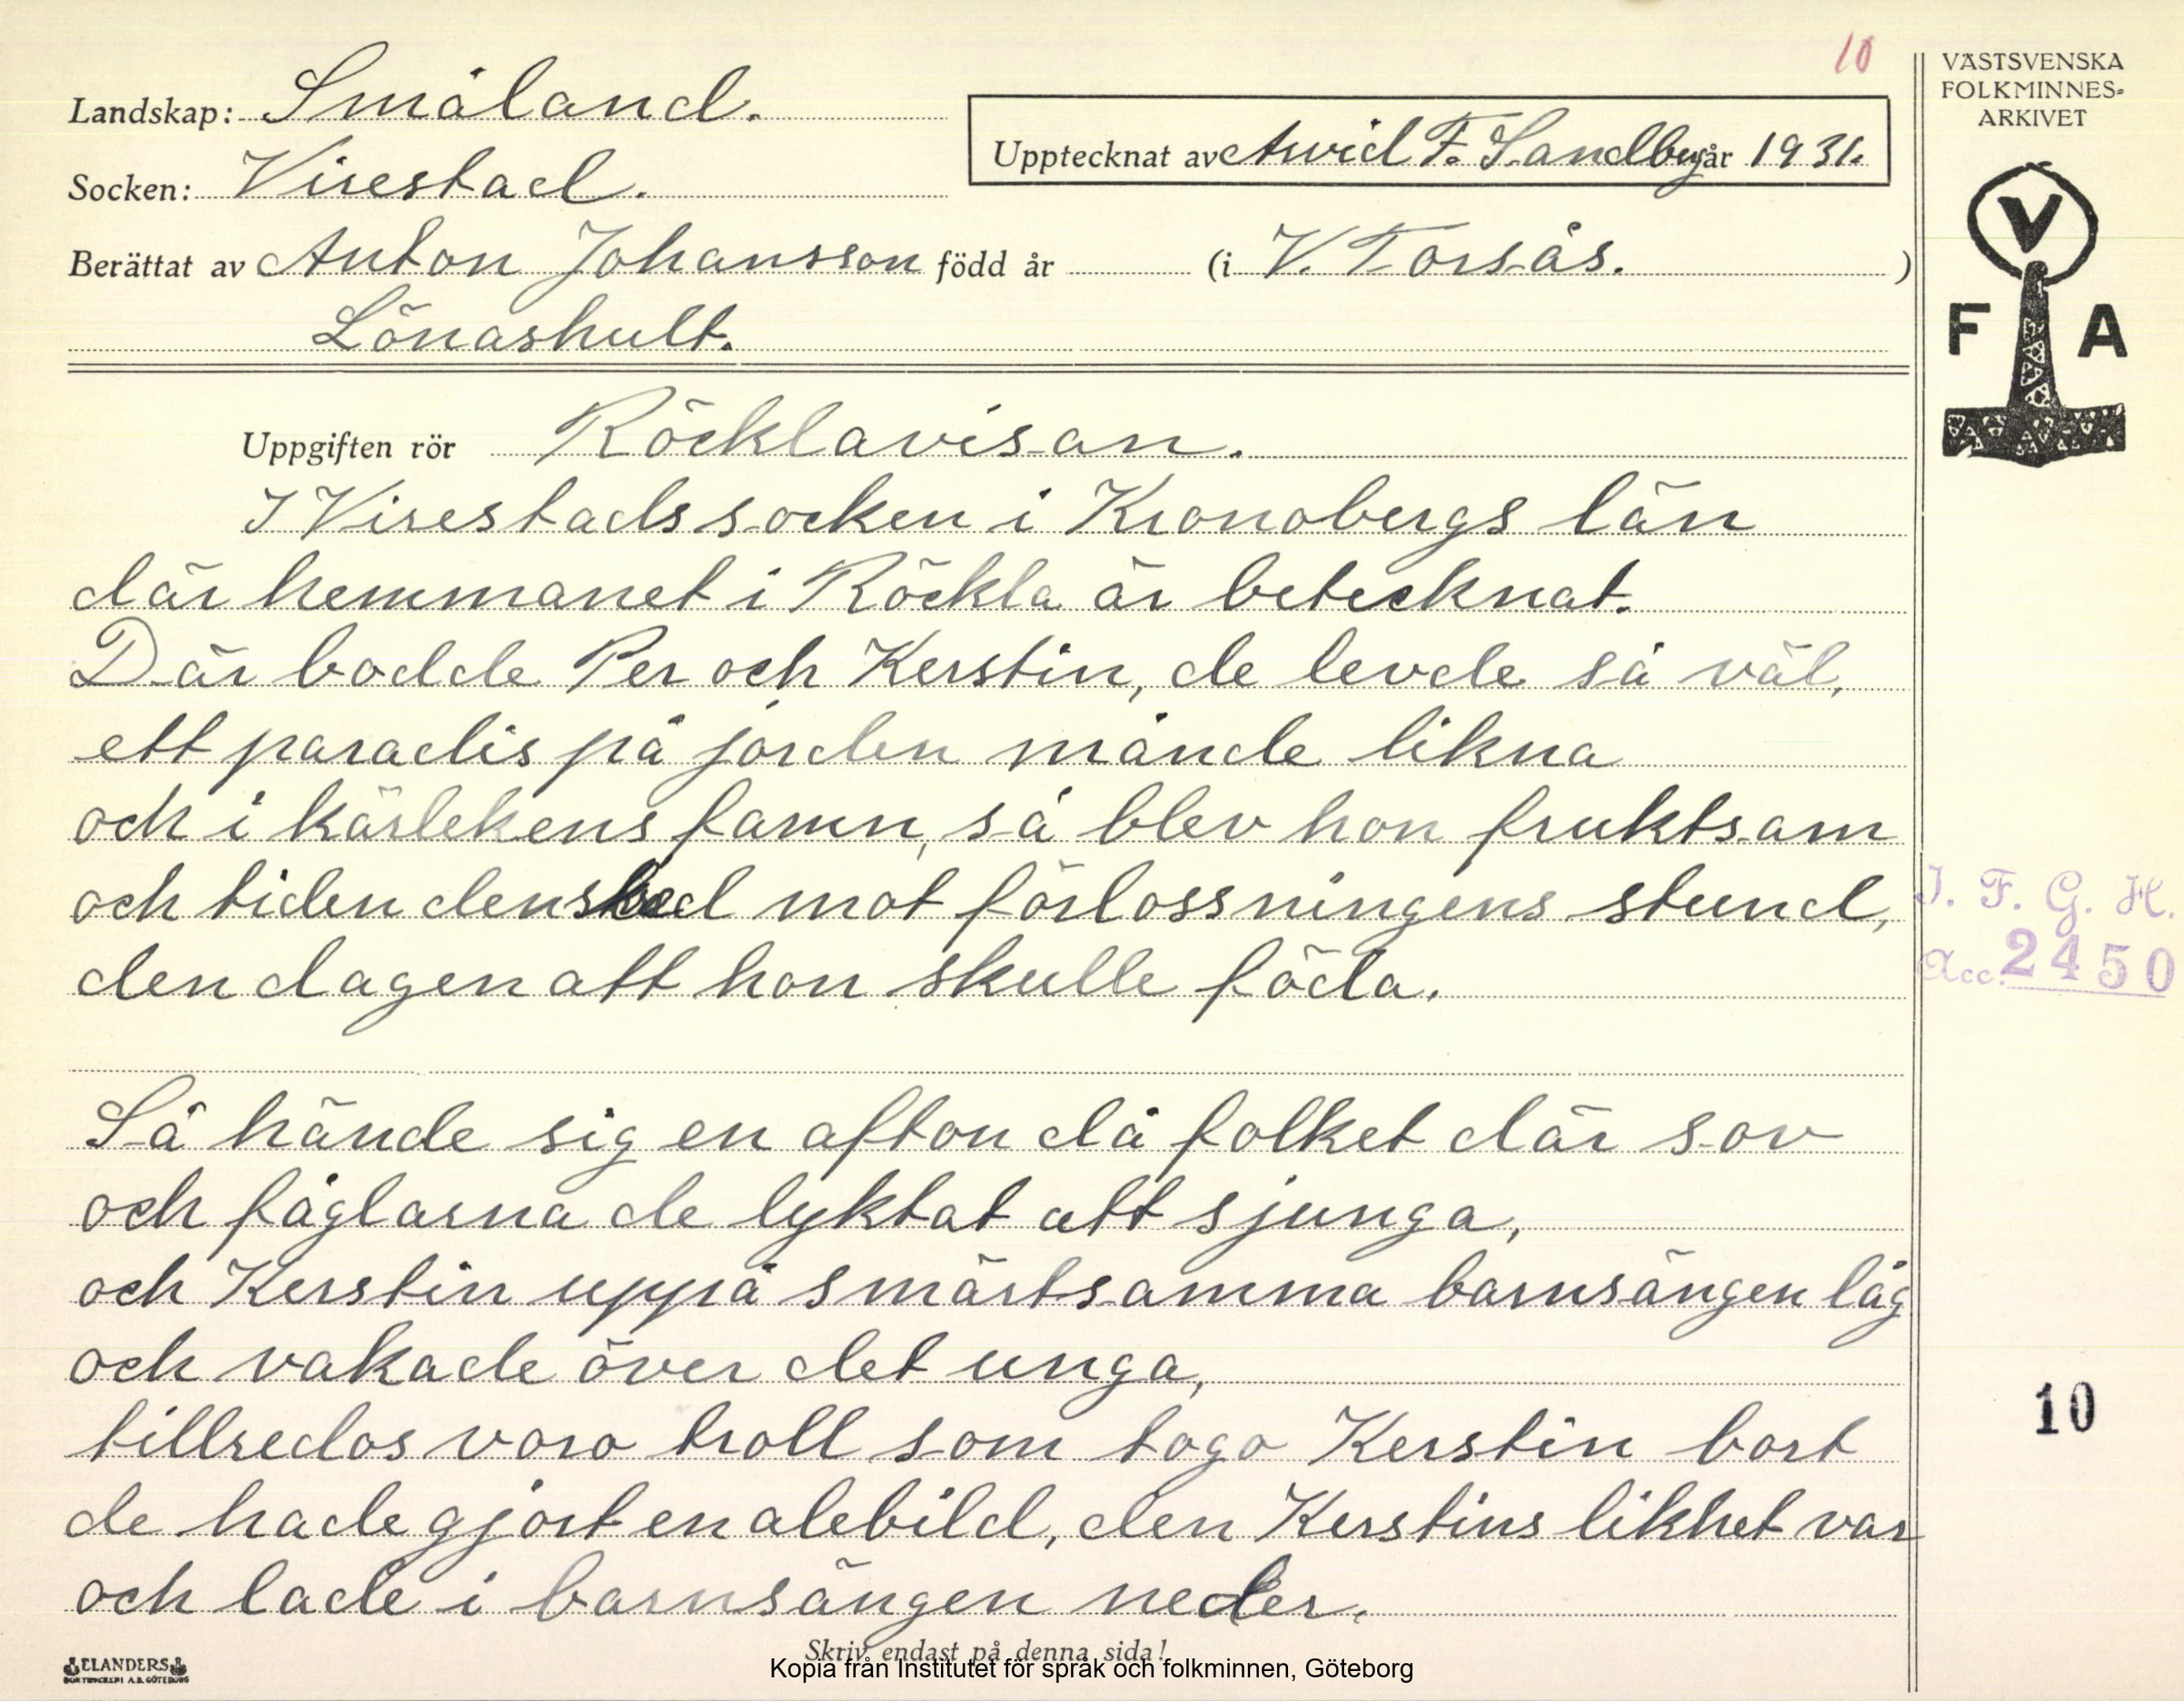 10
VÄSTSVENSKA
FOLKMINNES-
ARKIVET
Landskap: Småland.
Upptecknat av Arvid F. Sandby år 1931.
Socken: Virestad.
Berättat av Anton Johansson född år (i V. Torsås. )
Lönashult.
V
F A
Uppgiften rör Röcklavisan.
I Virestads socken i Kronobergs län
där hemmanet i Röckla är betecknat.
Där bodde Per och Kerstin, de levde så väl,
ett paradis på jorden månde likna
och i kärlekens famn, så blev hon fruktsam
och tiden den sked mot förlossningens stund,
den dagen att hon skulle föda.
I. F. G. H.
Acc. 2450
Så hände sig en afton då folket där sov
och fåglarna de lyktat att sjunga,
och Kerstin uppå smärtsamma barnsängen låg
och vakade över det unga,
tillredos voro troll som togo Kerstin bort
de hade gjort en alebild, den Kerstins likhet var
och lade i barnsängen neder.
10
Skriv endast på denna sida!
ELANDERS
BOKTRYCKERI A.B. GÖTEBORG
Kopia från Institutet för språk och folkminnen, Göteborg